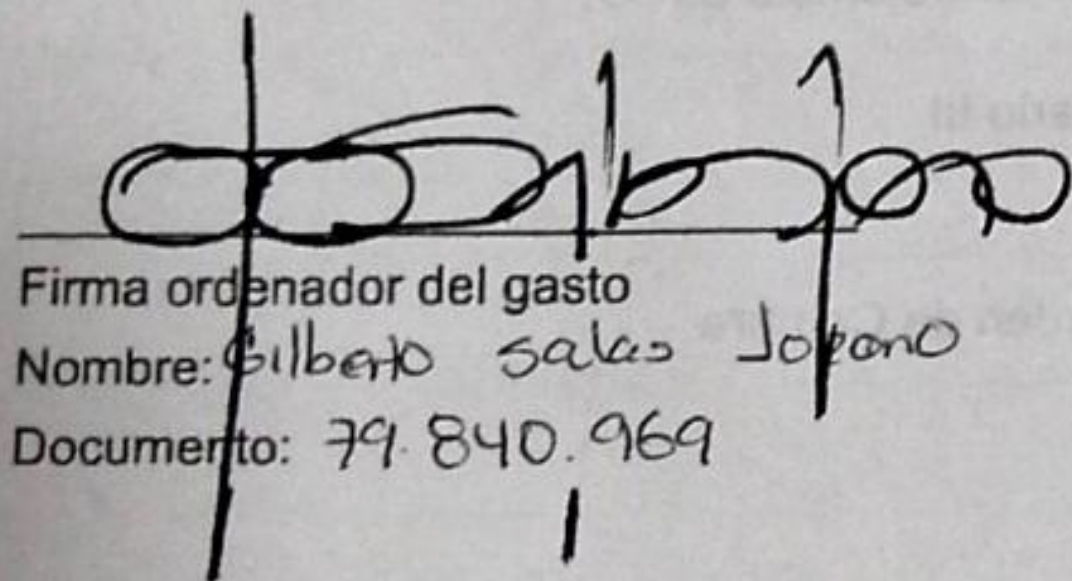 Firma ordenador del gasto
Nombre: Gilberto Salas
Documento: 79.840.969